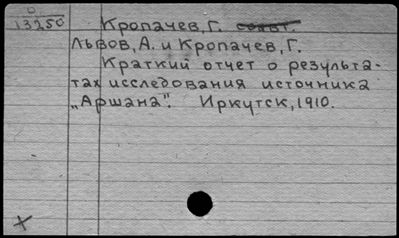 О
13250
Кропачев, Г. соавт.
Львов, А. и Кропачев, Г.
Краткий отчет о результа-
тах исследования источника
„Аршана". Иркутск, 1910.